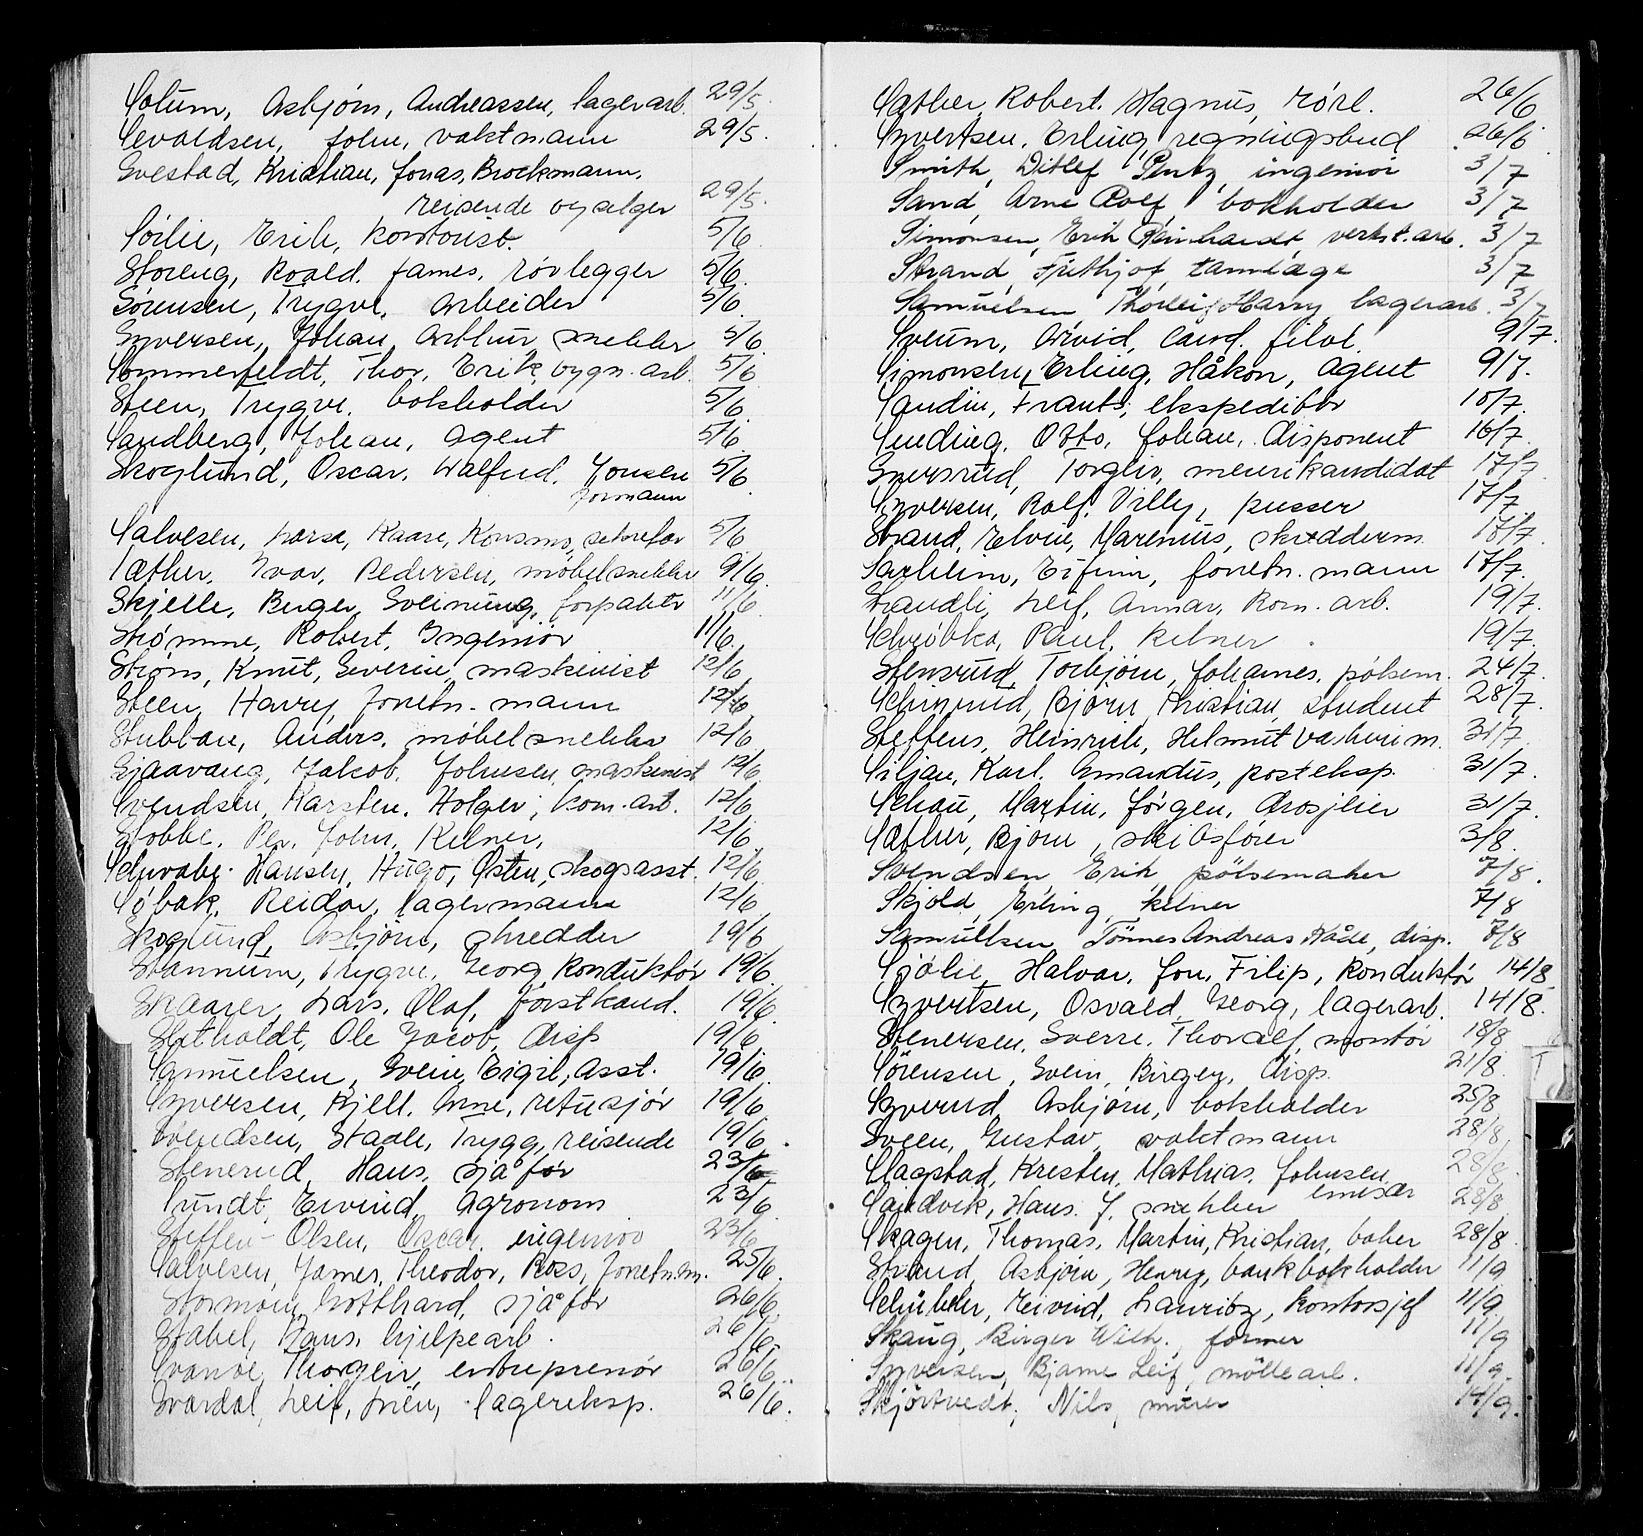 Solum, Asbjørn, Andreassen, lagerarb. 29/5.
Sevaldsen, John, vaktmann 29/5.
Svestad, Kristian, Jonas, Brockmann,
reisende og selger 29/5.
Søilie, Erik, kontorist. 5/6
Storeng, Roald. James, rørlegger 5/6.
Sørensen, Trygve, arbeider 5/6.
Syversen, Johan, Arthur snekker 5/6.
Sommerfeldt, Thor, Erik, bygn. arb. 5/6
Steen, Trygve, bokholder 5/6.
Sandberg, Johan, agent 5/6.
Skoglund, Oscar, Walfrid, Jonsen 5/6
formann
Salvesen, Lorse, Kaare, Konsmo, sekretær 5/6
Sæther, Ivar, Pedersen, møbelsnekker 9/6.
Skjelle, Birger, Sveinung, forpakter 11/6.
Strømme, Robert, Ingeniør 11/6.
Strøm, Knut, Severin, maskinist 12/6
Steen, Harry, forretn. mann 12/6
Stubban, Anders, møbelsnekker 12/6
Sjaavang, Jakob, Johnsen, maskinist 12/6
Svendsen, Karsten, Holger, kom. arb. 12/6
Stobbe, Per, John, Kelner, 12/6.
Schwabe-Hansen, Hugo, Østen, skogsasst. 12/6
Søbak, Reidar, lagermann 12/6
Skoglund, Asbjørn, skredder 19/6
Stannum, Trygve, Georg, konduktør 19/6
Skaarer, Lars, Olaf, forstkand. 19/6.
Stitholdt, Ole Jacob, disp 19/6.
Samuelsen, Svein, Eigil, Asst. 19/6.
Syversen, Kjell, Arne, retusjør 19/6
Svendsen, Staale, Trygg, reisende 19/6.
Stenerud, Hans, sjåfør 23/6
Sundt, Eivind, agronom 23/6
Steffen-Olsen, Oscar, ingeniør 23/6
Salvesen, James, Theodor, Ross, forretn.m. 25/6.
Stormoen, Gotthard, sjåfør 26/6.
Stabel, Hans, hjelpearb. 26/6.
Svanøe, Thorgeir, entreprenør 26/6.
Svardal, Leif, Lién, lagereksp. 26/6.
Sæther, Robert, Magnus, rørl. 26/6
Syvertsen, Erling, regningsbud 26/6.
Smith, Ditlef Pentz, ingeniør 3/7
Sand, Arne Rolf, bokholder 3/7
Simonsen, Erik Reinhardt verkst. arb. 3/7
Strand, Frithjof, tannlæge 3/7
Samuelsen, Thorleif Harry, lagerarb. 3/7
Sveum, Arvid, cand. filol. 9/7.
Simonsen, Erling, Håkon, agent 9/7.
Sandin, Frants, ekspeditør 10/7.
Sinding, Otto, Johan, disponent 16/7.
Syversrud, Torgeir, meierikandidat 17/7
Syversen, Rolf, Villy, pusser 17/7.
Strand, Elvin, Marenius, skredderm. 17/7.
Sælhem, Eifinn, forretn. mann 17/7.
Strandli, Leif, Annar, kom. arb. 19/7.
Schröbka, Paul, kelner 19/7.
Stensrud, Torbjørn, Johannes, pølsem. 24/7.
Schinrud, Bjørn, Christian, student 28/7.
Steffens, Heinrich, Helmut vaskerim. 31/7.
Siljan, Karl, Amandus, posteksp. 31/7.
Schau, Martin, Jørgen, drosjeeier 31/7.
Sæther, Bjørn, skibsfører 3/8.
Svendsen Erik, pølsemaker 7/8.
Skjold, Erling, kelner 7/8
Samuelsen, Tönnes Andreas Kåde, disp. 7/8
Sjølie, Halvar, Jon, Filip, konduktør 14/8
Syvertsen, Osvald, Georg, lagerarb. 14/8.
Stenersen, Sverre, Thoralf, montør 18/8
Sörensen, Svein, Birger, disp. 21/8.
Syverud, Asbjørn, bokholder 25/8
Sveen, Gustav, vaktmann 28/8
Slagstad, Kresten, Mathias, Johnsen, 28/8
emisær
Sandvik, Hans. J. snekker 28/8
Skagen, Thomas, Martin, Kristian, baker 28/8
Strand, Asbjørn, Henry, bankbokholder 11/9
Schübeler, Eivind, Lauritz, kontorsjef 11/9.
Skaug, Birger Wilh., former 11/9
Syversen, Bjarne Leif, möllearb. 11/9.
Skjörtvedt, Nils, murer 14/9.
T